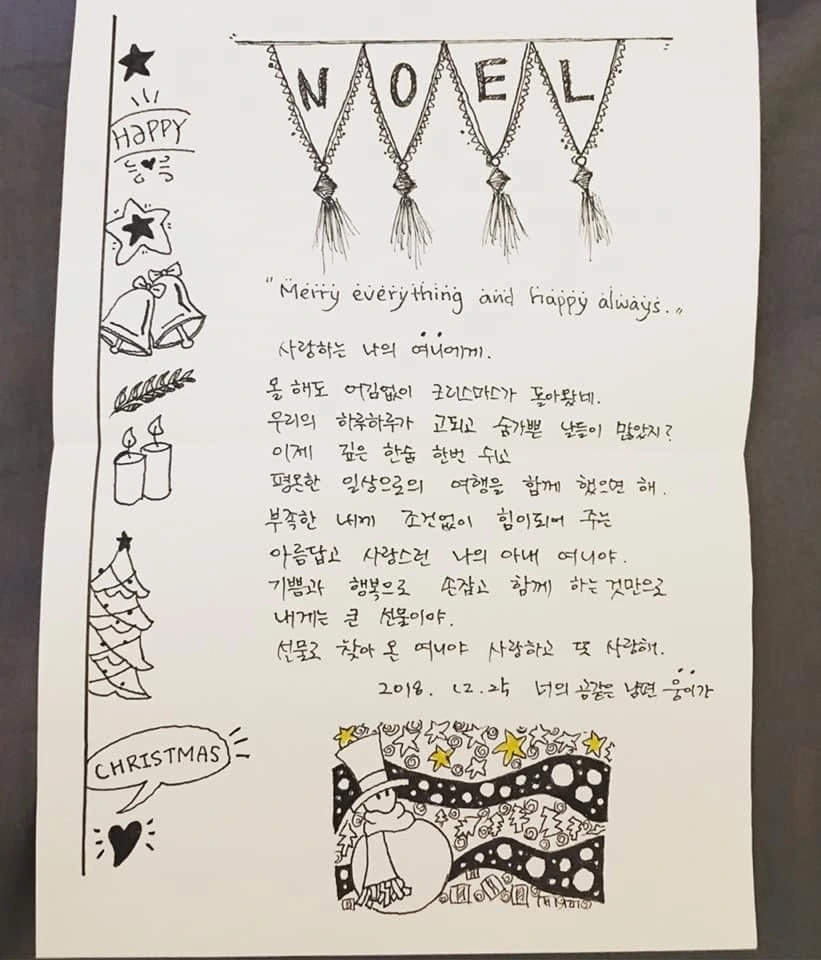 NOEL
HAPPY
"Merry everything and happy always."
사랑하는 나의 여니에게.
올 해도 어김없이 크리스마스가 돌아왔네.
우리의 하루하루가 고되고 숨가쁜 날들이 많았지?
이제 깊은 한숨 한번 쉬고
평온한 일상으로의 여행을 함께 했으면 해.
부족한 내게 조건없이 힘이되어 주는
아름답고 사랑스런 나의 아내 여니야.
기쁨과 행복으로 손잡고 함께 하는 것만으로
내게는 큰 선물이야.
선물로 찾아 온 여니야 사랑하고 또 사랑해.
2018. 12. 25 너의 곰같은 남편 웅이가
CHRISTMAS